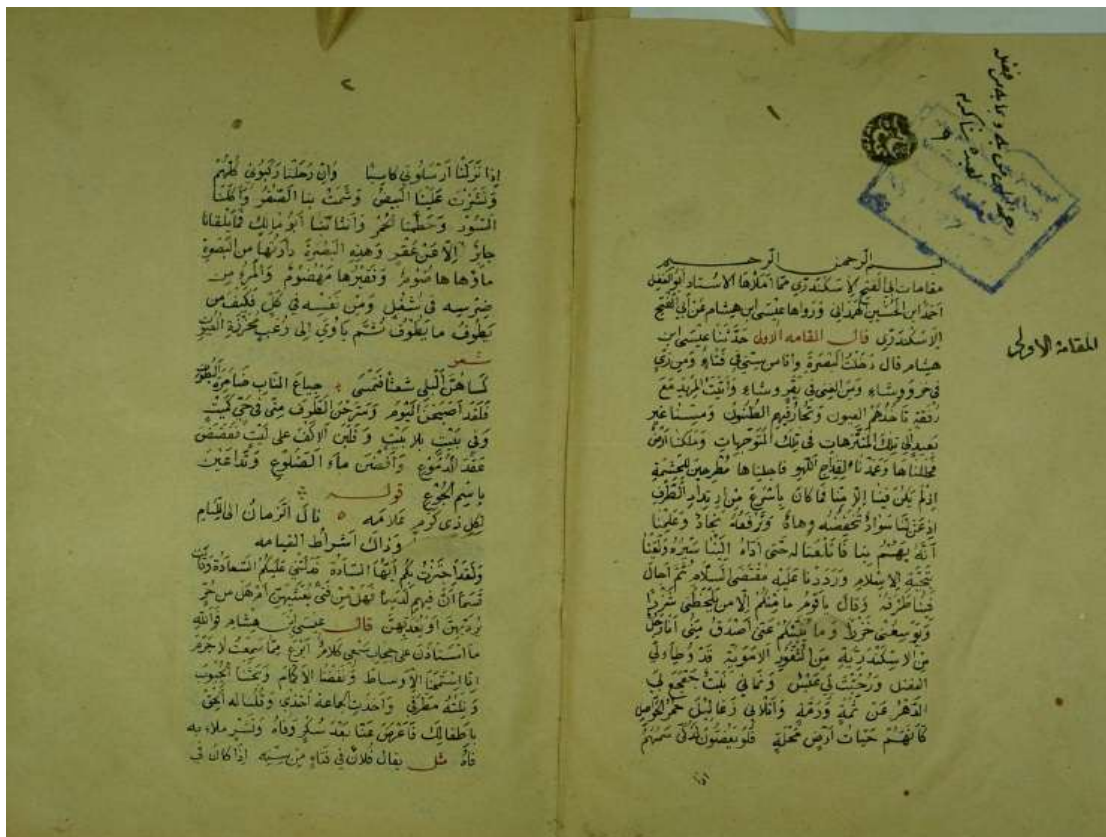 ١
بسم الرحمن الرحيم
مقامات ابي الفتح الاسكندري مما املاها الاستاد ابو الفضل
احمد ابن الحسين الهمداني ورواها عيسى ابن هشام عن ابي الفتح
الاسكندري قال المقامه الاولى حدثنا عيسى ابن
هشام قال دخلت البصرة وانا من سني في فتاء ومن زي
في حبر ووشاء ومن الغنى في بقر وشاء وأتيت المربد مع
رفقة تأخذهم العيون وتحار فيهم الظنون ومشينا غير
بعيد الى تلك المتنزهات في تلك المتوجهات وملكتنا ارض
فحللناها وعمدنا لقداح اللهو فاجلناها مطرحين للحشمة
اذ لم يكن فينا الا منا فما كان بأسرع من ارتداد الطرف
اذ عن لنا سواد تخفضه وهاد وترفعه نجاد وعلمنا
أنه يهتم بنا فاتلعنا له حتى أداه الينا سيره ولقينا
بتحية الاسلام ورددنا عليه مقتضى السلام ثم أجال
فينا طرفه وقال يا قوم ما منكم الا من يلحظني شزرا
ويوسعني حزرا وما ينبئكم عني أصدق مني أنا رجل
من الاسكندرية من الثغور الاموية قد وطأ لي
الفضل ورحب بي عيش ونماني بيت جعجع بي
الدهر عن ثمه ورمه وأتلاني زغاليل حمر الحواصل
كأنهم حيات أرض محلة فلو يعضون لذكى سمهم
اذا
المقامة الاولى
٢
إذا نزلنا أرسلوني كاسبا وان رحلنا ركبوني كلهم
ونشزت علينا البيض وشمست بنا الصفر وأكلتنا
السود وحطمتنا الحمر وانتابنا أبو مالك فما يلقانا
جابر إلا عن عقر وهذه البصرة
ماؤها هاضوم وفقيرها مهضوم والمرء من
ضرسه في شغل ومن نفسه في كل فكيف من
يطوف ما يطوف ثم يأوي إلى زغب محددة العيون
شعر
كساهن البلى شعثا فتمسى جياع الناب ضامرة البطون
فلقد اصبحن اليوم وسرحن الطرف منى في حي كميت
وفي بيت بلا بيت وقلبن الاكف على ليت ففضضن
عقد الدموع وأفضن ماء الضلوع وتداعين
باسم الجوع قوله
لكل ذي كرم علامه قال الزمان الى اللئام
وذاك أشراط القيامه
ولقد اخترت بكم أيها السادة فدلتني عليكم السعادة وقلت
قسما ان فيهم لدسما فهل من فتى يعشيهن أم هل من حر
يرديهن أو يغديهن قال عيسى ابن هشام فوالله
ما استاذن على حجاب سمعي كلام أبرع مما سمعت لا جرم
انا استمحنا الاوساط ونفضنا الاكمام ونحينا الجيوب
ونلته مطرفي وأخذت الجماعة أخذي وقلنا له الحق
باطفالك فاعرض عنا بعد شكر وفاه ونشر ملاء به
فاه مثل يقال فلان في فتاء من سنه إذا كان في